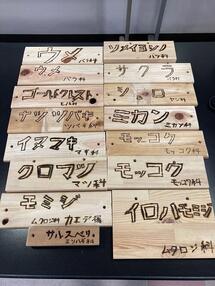 ウメ
バラ科
ウメ
バラ科
ゴールドクレスト
ヒノキ科
ナツツバキ
ツバキ科
イヌマキ
マキ科
クロマツ
マツ科
モミジ
ムクロジ科 カエデ属
サルスベリ
ミソハギ科
ソメイヨシノ
バラ科
サクラ
バラ科
シュロ
ヤシ科
ミカン
ミカン科
モッコク
モッコク科
モッコク
モッコク科
イロハモミジ
ムクロジ科